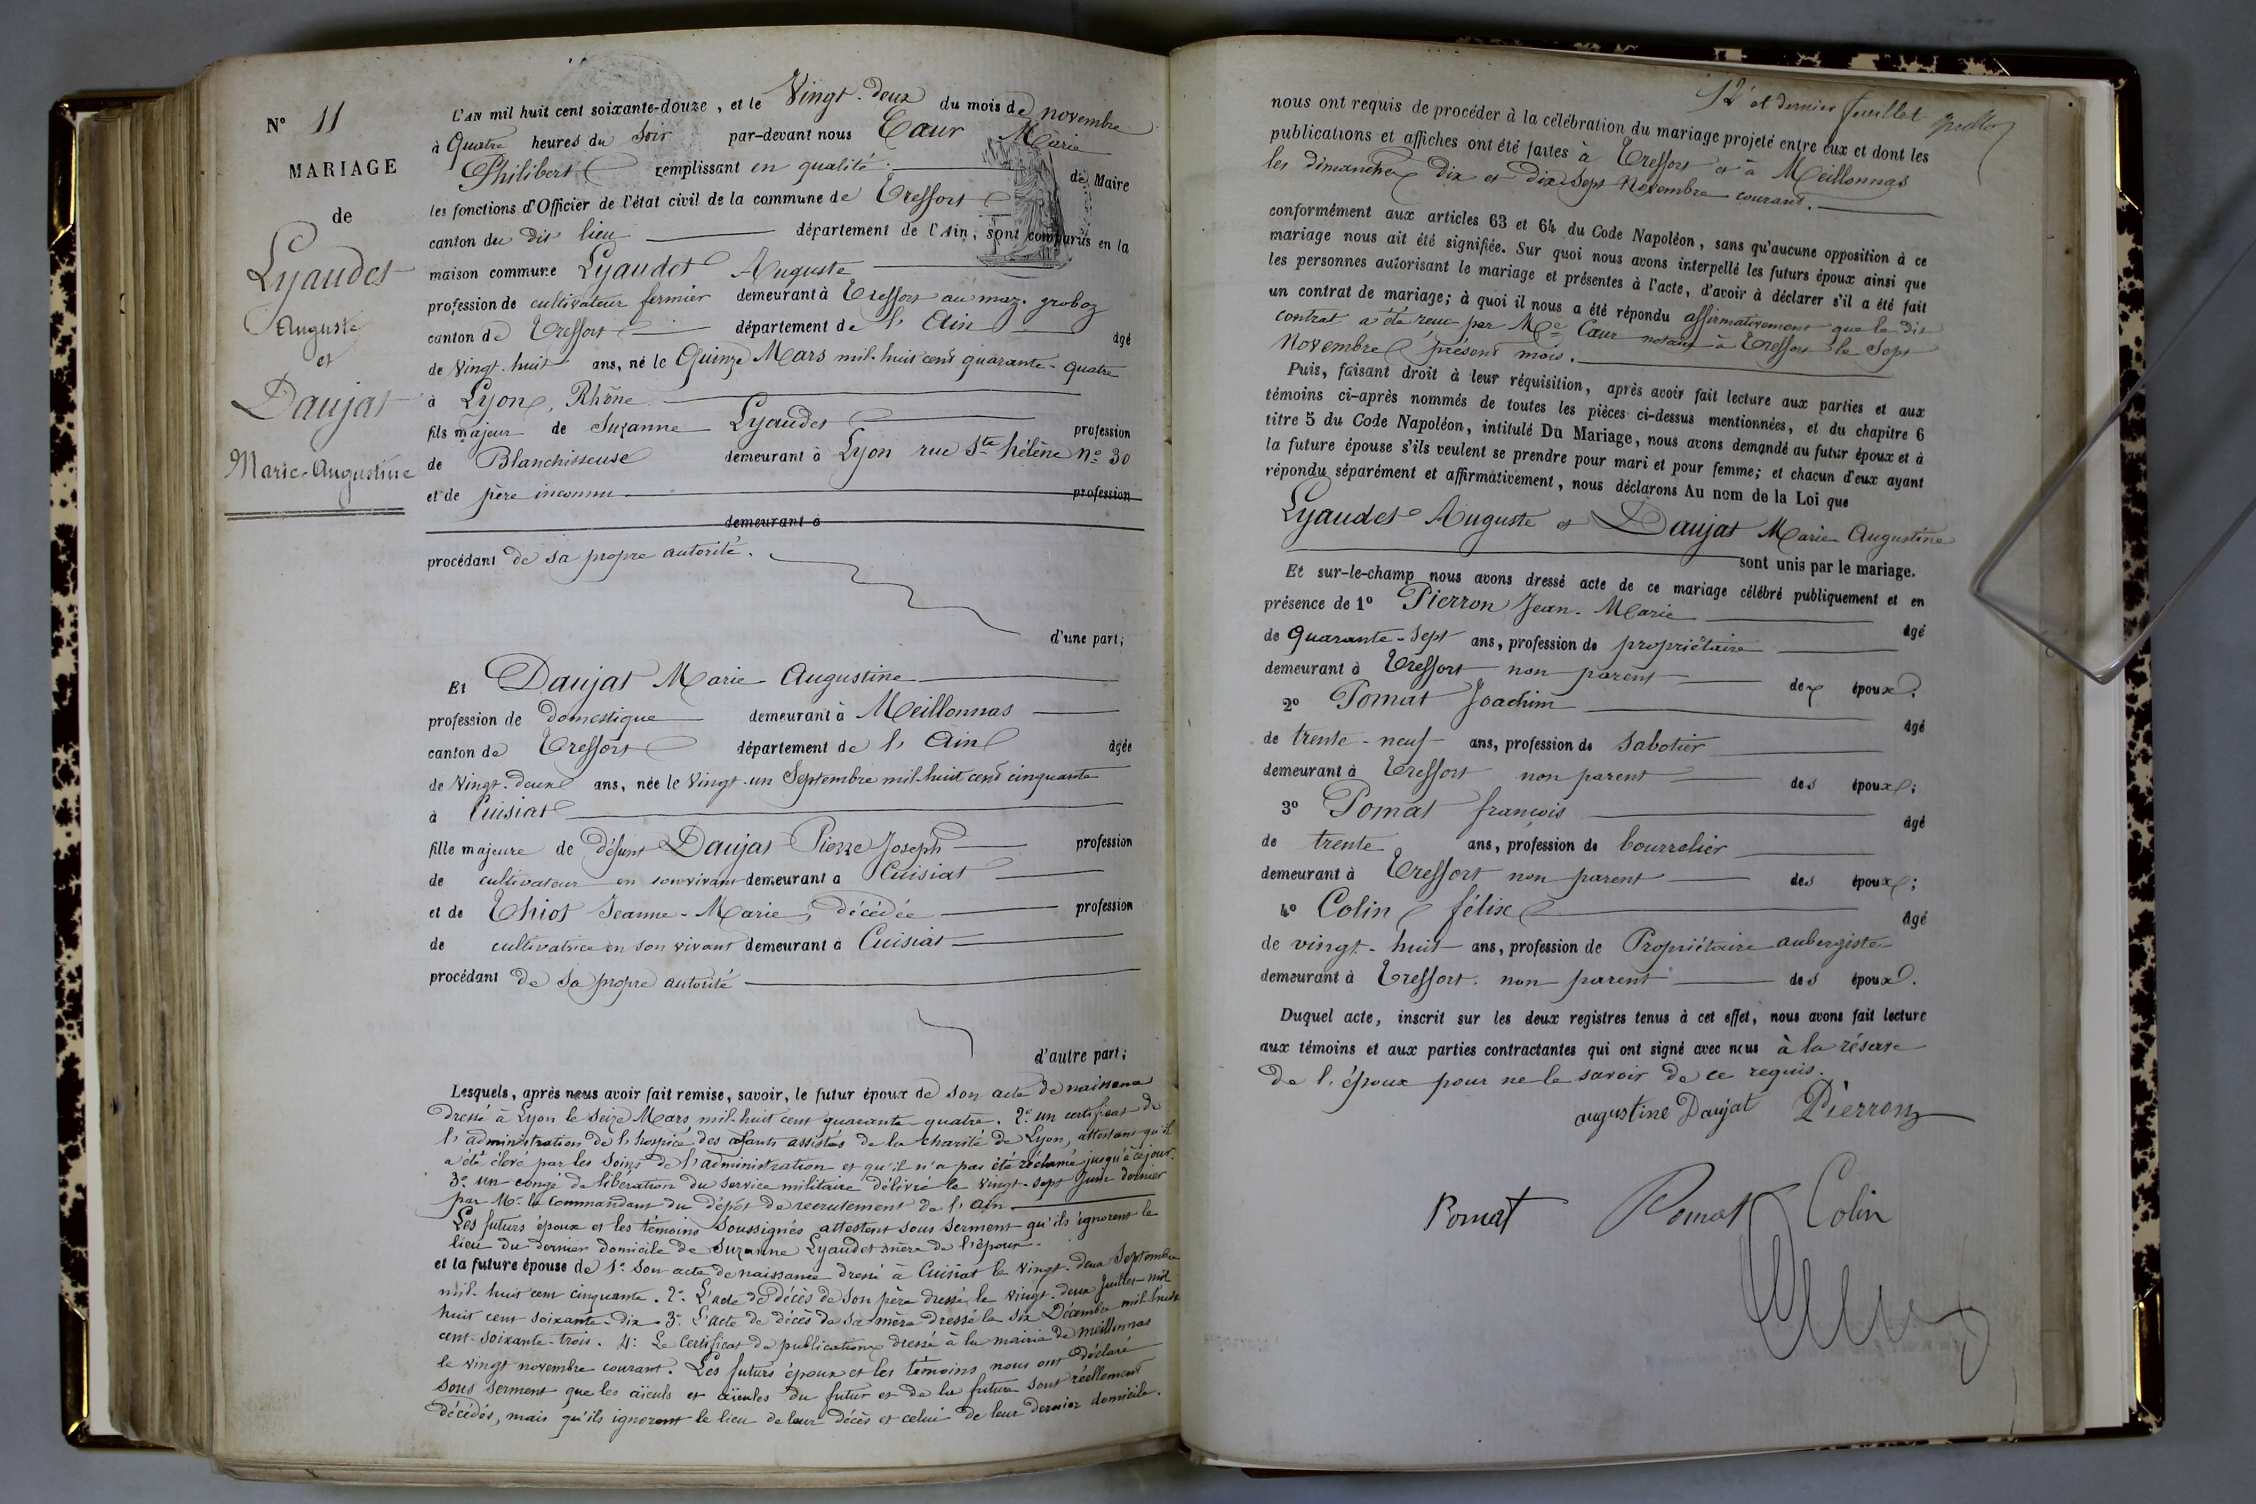 N° 11
MARIAGE
de
Lyaudet
Auguste
et
Daujat
Marie-Augustine
L'AN mil huit cent soixante-douze, et le Vingt-deux du mois de novembre
à Quatre heures du Soir par-devant nous Cœur Marie
Philibert remplissant en qualité de Maire
les fonctions d'Officier de l'état civil de la commune de Treffort
canton du dit lieu département de l'Ain, sont comparus en la
maison commune Lyaudet Auguste
profession de cultivateur fermier demeurant à Treffort au maz. groboz
canton de Treffort département de l'Ain âgé
de Vingt-huit ans, né le Quinze Mars mil-huit cent quarante-quatre
à Lyon, Rhône
fils majeur de Suzanne Lyaudet profession
de Blanchisseuse demeurant à Lyon rue Ste hélène n° 30
et de père inconnu profession
demeurant à
procédant de sa propre autorité.
d'une part;
Et Daujat Marie Augustine
profession de domestique demeurant à Meillonnas
canton de Treffort département de l'Ain âgée
de Vingt-deux ans, née le Vingt-un Septembre mil-huit cent cinquante
à Cuisiat
fille majeure de défunt Daujat Pierre Joseph profession
de cultivateur en son vivant demeurant à Cuisiat
et de Thiot Jeanne-Marie, décédée profession
de cultivatrice en son vivant demeurant à Cuisiat
procédant de sa propre autorité
d'autre part;
Lesquels, après nous avoir fait remise, savoir, le futur époux de son acte de naissance
dressé à Lyon le Seize Mars, mil-huit cent quarante quatre. 2° un certificat de
l'administration de l'hospice des enfants assistés de la charité de Lyon, attestant qu'il
a été élevé par les soins de l'administration et qu'il n'a pas été réclamé jusqu'à ce jour.
3° un congé de libération du service militaire délivré le vingt-sept Juin dernier
par Mr le Commandant du dépôt de recrutement de l'ain
Les futurs époux et les témoins soussignés attestent sous serment qu'ils ignorent le
lieu du dernier domicile de Suzanne Lyaudet mère de l'époux.
et la future épouse de 1° Son acte de naissance dressé à Cuisiat le vingt-deux Septembre
mil-huit cent cinquante. 2° L'acte de décès de son père dressé le vingt-deux Juillet mil
huit cent soixante-dix 3° L'acte de décès de sa mère dressé le six Décembre mil-huit
cent-soixante-trois. 4° Le certificat de publications dressé à la mairie de meillonnas
le vingt novembre courant. Les futurs époux et les témoins nous ont déclaré
sous serment que les aïeuls et aïeules du futur et de la future sont réellement
décédés, mais qu'ils ignorent le lieu de leur décès et celui de leur dernier domicile.
12e et dernier feuillet
nous ont requis de procéder à la célébration du mariage projeté entre eux et dont les
publications et affiches ont été faites à Treffort et à Meillonnas
les dimanches dix et dix-sept Novembre courant.
conformément aux articles 63 et 64 du Code Napoléon, sans qu'aucune opposition à ce
mariage nous ait été signifiée. Sur quoi nous avons interpellé les futurs époux ainsi que
les personnes autorisant le mariage et présentes à l'acte, d'avoir à déclarer s'il a été fait
un contrat de mariage; à quoi il nous a été répondu affirmativement que le dit
contrat a été reçu par Me Cœur notaire à Treffort le Sept
Novembre présent mois.
Puis, faisant droit à leur réquisition, après avoir fait lecture aux parties et aux
témoins ci-après nommés de toutes les pièces ci-dessus mentionnées, et du chapitre 6
titre 5 du Code Napoléon, intitulé Du Mariage, nous avons demandé au futur époux et à
la future épouse s'ils veulent se prendre pour mari et pour femme; et chacun d'eux ayant
répondu séparément et affirmativement, nous déclarons Au nom de la Loi que
Lyaudet Auguste et Daujat Marie Augustine
sont unis par le mariage.
Et sur-le-champ nous avons dressé acte de ce mariage célébré publiquement et en
présence de 1° Pierron Jean-Marie âgé
de Quarante-sept ans, profession de propriétaire
demeurant à Treffort non parent des époux.
2° Pomat Joachim âgé
de trente-neuf ans, profession de sabotier
demeurant à Treffort non parent des époux;
3° Pomat françois âgé
de trente ans, profession de bourrelier
demeurant à Treffort non parent des époux;
4° Colin félix âgé
de vingt-huit ans, profession de Propriétaire aubergiste
demeurant à Treffort. non parent des époux.
Duquel acte, inscrit sur les deux registres tenus à cet effet, nous avons fait lecture
aux témoins et aux parties contractantes qui ont signé avec nous à la réserve
de l'époux pour ne le savoir de ce requis.
augustine Daujat Pierron
Pomat Pomat Colin